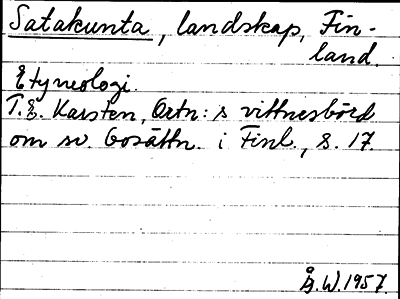 Satakunta, landskap, Fin-
land.
Etymologi.
T.E. Karsten, Ortn:s vittnesbörd
om sv. bosättn. i Finl., s. 17.
Å.W.1957.